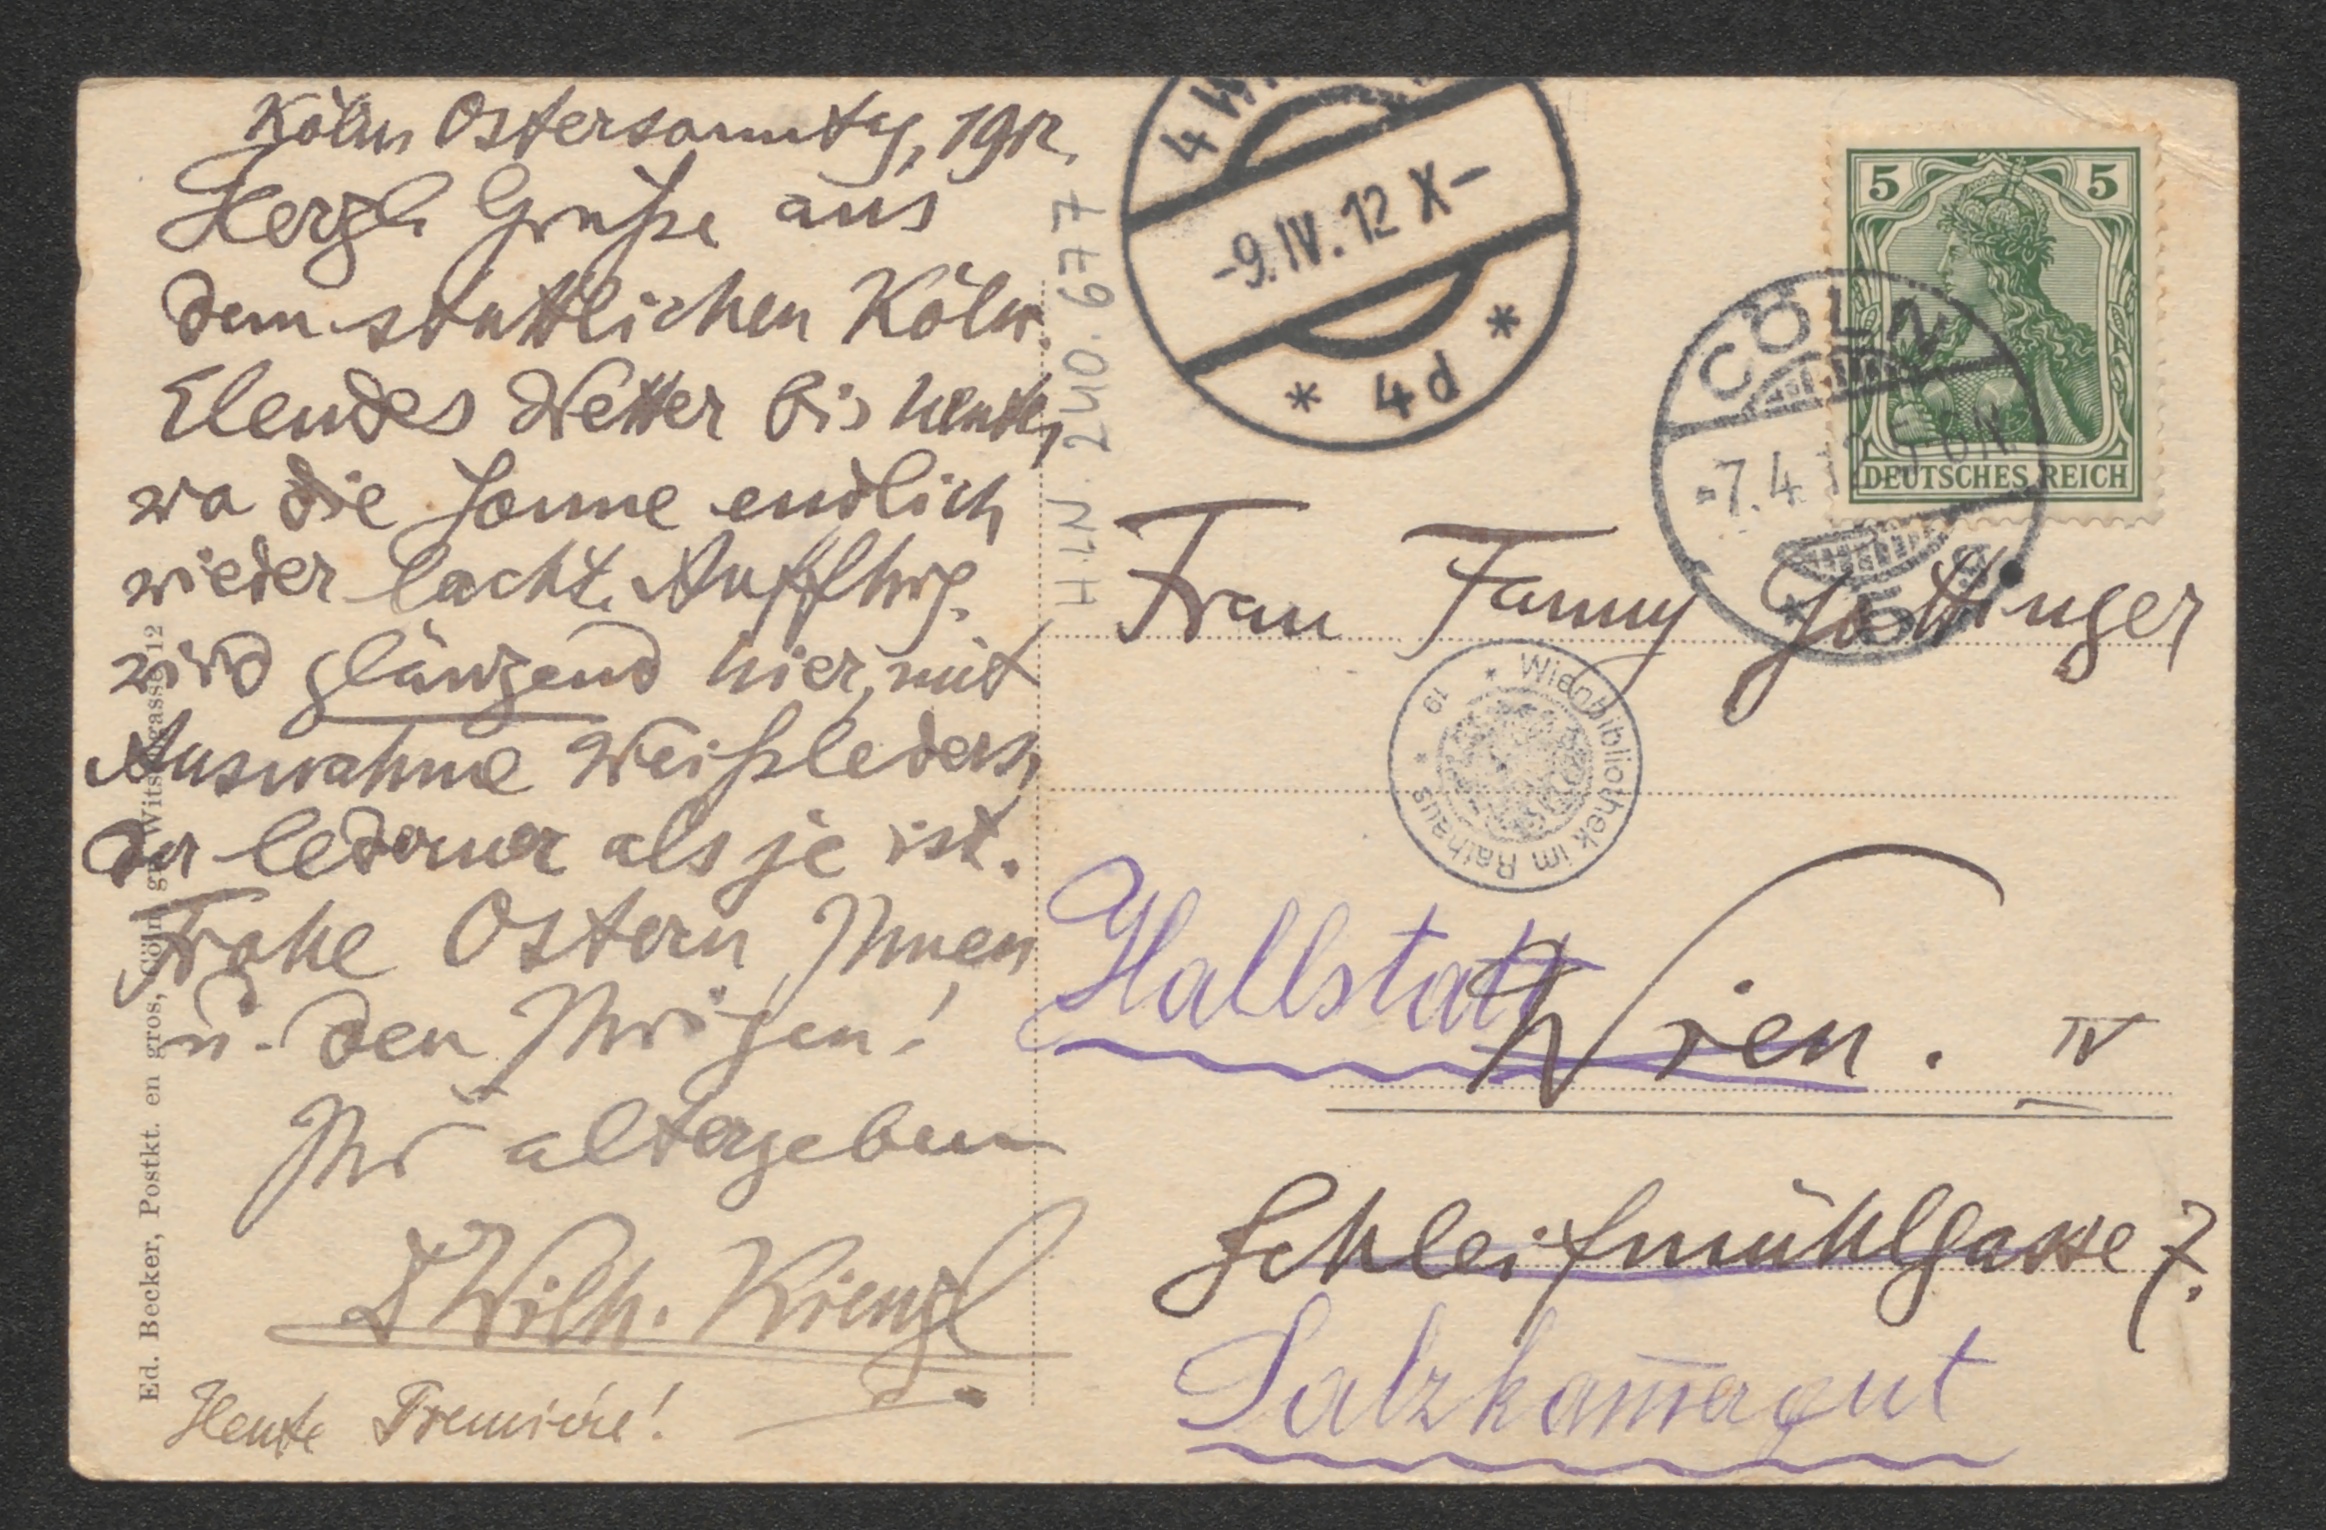 Köln, Ostersonntg, 1912.
Herzl. Grüße aus
dem stattlichen Köln.
Elendes Wetter bis heute,
wo die Sonne endlich
wieder lacht. Auffhrg.
wird glänzend hier, mit
Ausnahme Weißleders,
der lederner als je ist.
Frohe Ostern Ihnen
u. den Ihrigen!
Ihr altergebener
Dr Wilh. Kienzl
Heute Première!
Ed. Becker, Postkt. en gros, Cöln, gr. Witschgasse 12
H.I.N. 240.677
4 WI
-9.IV.12 X-
* 4d *
5 5
DEUTSCHES REICH
CÖLN
-7.4.12 5-6N
Frau Fanny Göttinger
Wienbibliothek im Rathaus
19
Hallstatt
Wien. IV
Schleifmühlgasse 7.
Salzkam̅ergut